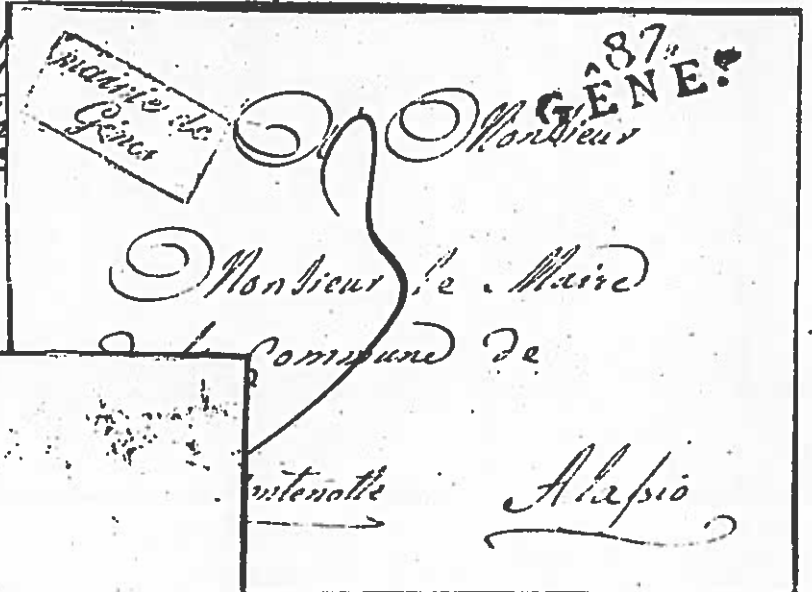 mairie de
Gênes
87.
GÊNES
A Monsieur
Monsieur le Maire
de la Commune de
ontenotte Alassio